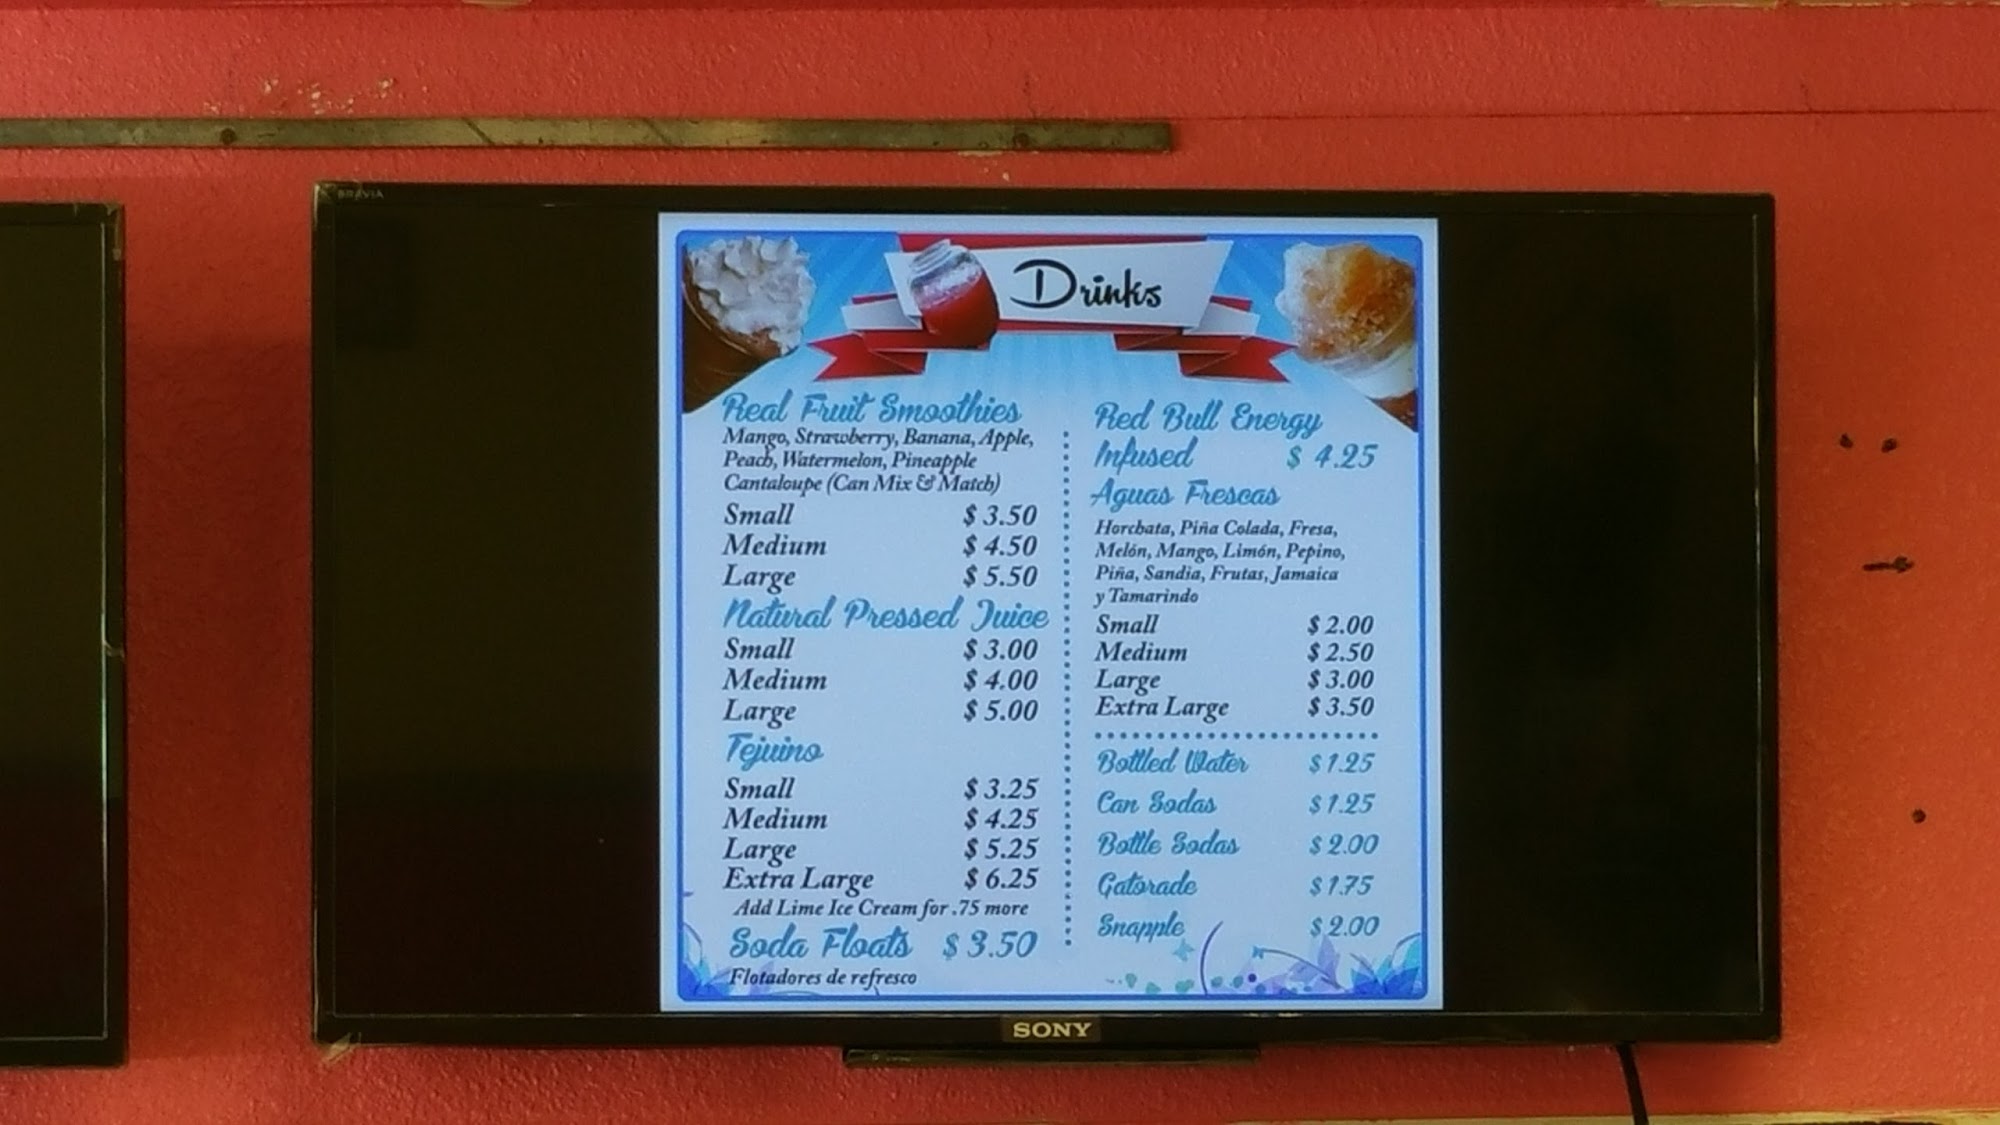 BRAVIA
Drinks
Real Fruit Smoothies
Mango, Strawberry, Banana, Apple,
Peach, Watermelon, Pineapple
Cantaloupe (Can Mix & Match)
Small $ 3.50
Medium $ 4.50
Large $ 5.50
Natural Pressed Juice
Small $ 3.00
Medium $ 4.00
Large $ 5.00
Tejuino
Small $ 3.25
Medium $ 4.25
Large $ 5.25
Extra Large $ 6.25
Add Lime Ice Cream for .75 more
Soda Floats $ 3.50
Flotadores de refresco
Red Bull Energy
Infused $ 4.25
Aguas Frescas
Horchata, Piña Colada, Fresa,
Melón, Mango, Limón, Pepino,
Piña, Sandia, Frutas, Jamaica
y Tamarindo
Small $ 2.00
Medium $ 2.50
Large $ 3.00
Extra Large $ 3.50
Bottled Water $ 1.25
Can Sodas $ 1.25
Bottle Sodas $ 2.00
Gatorade $ 1.75
Snapple $ 2.00
SONY